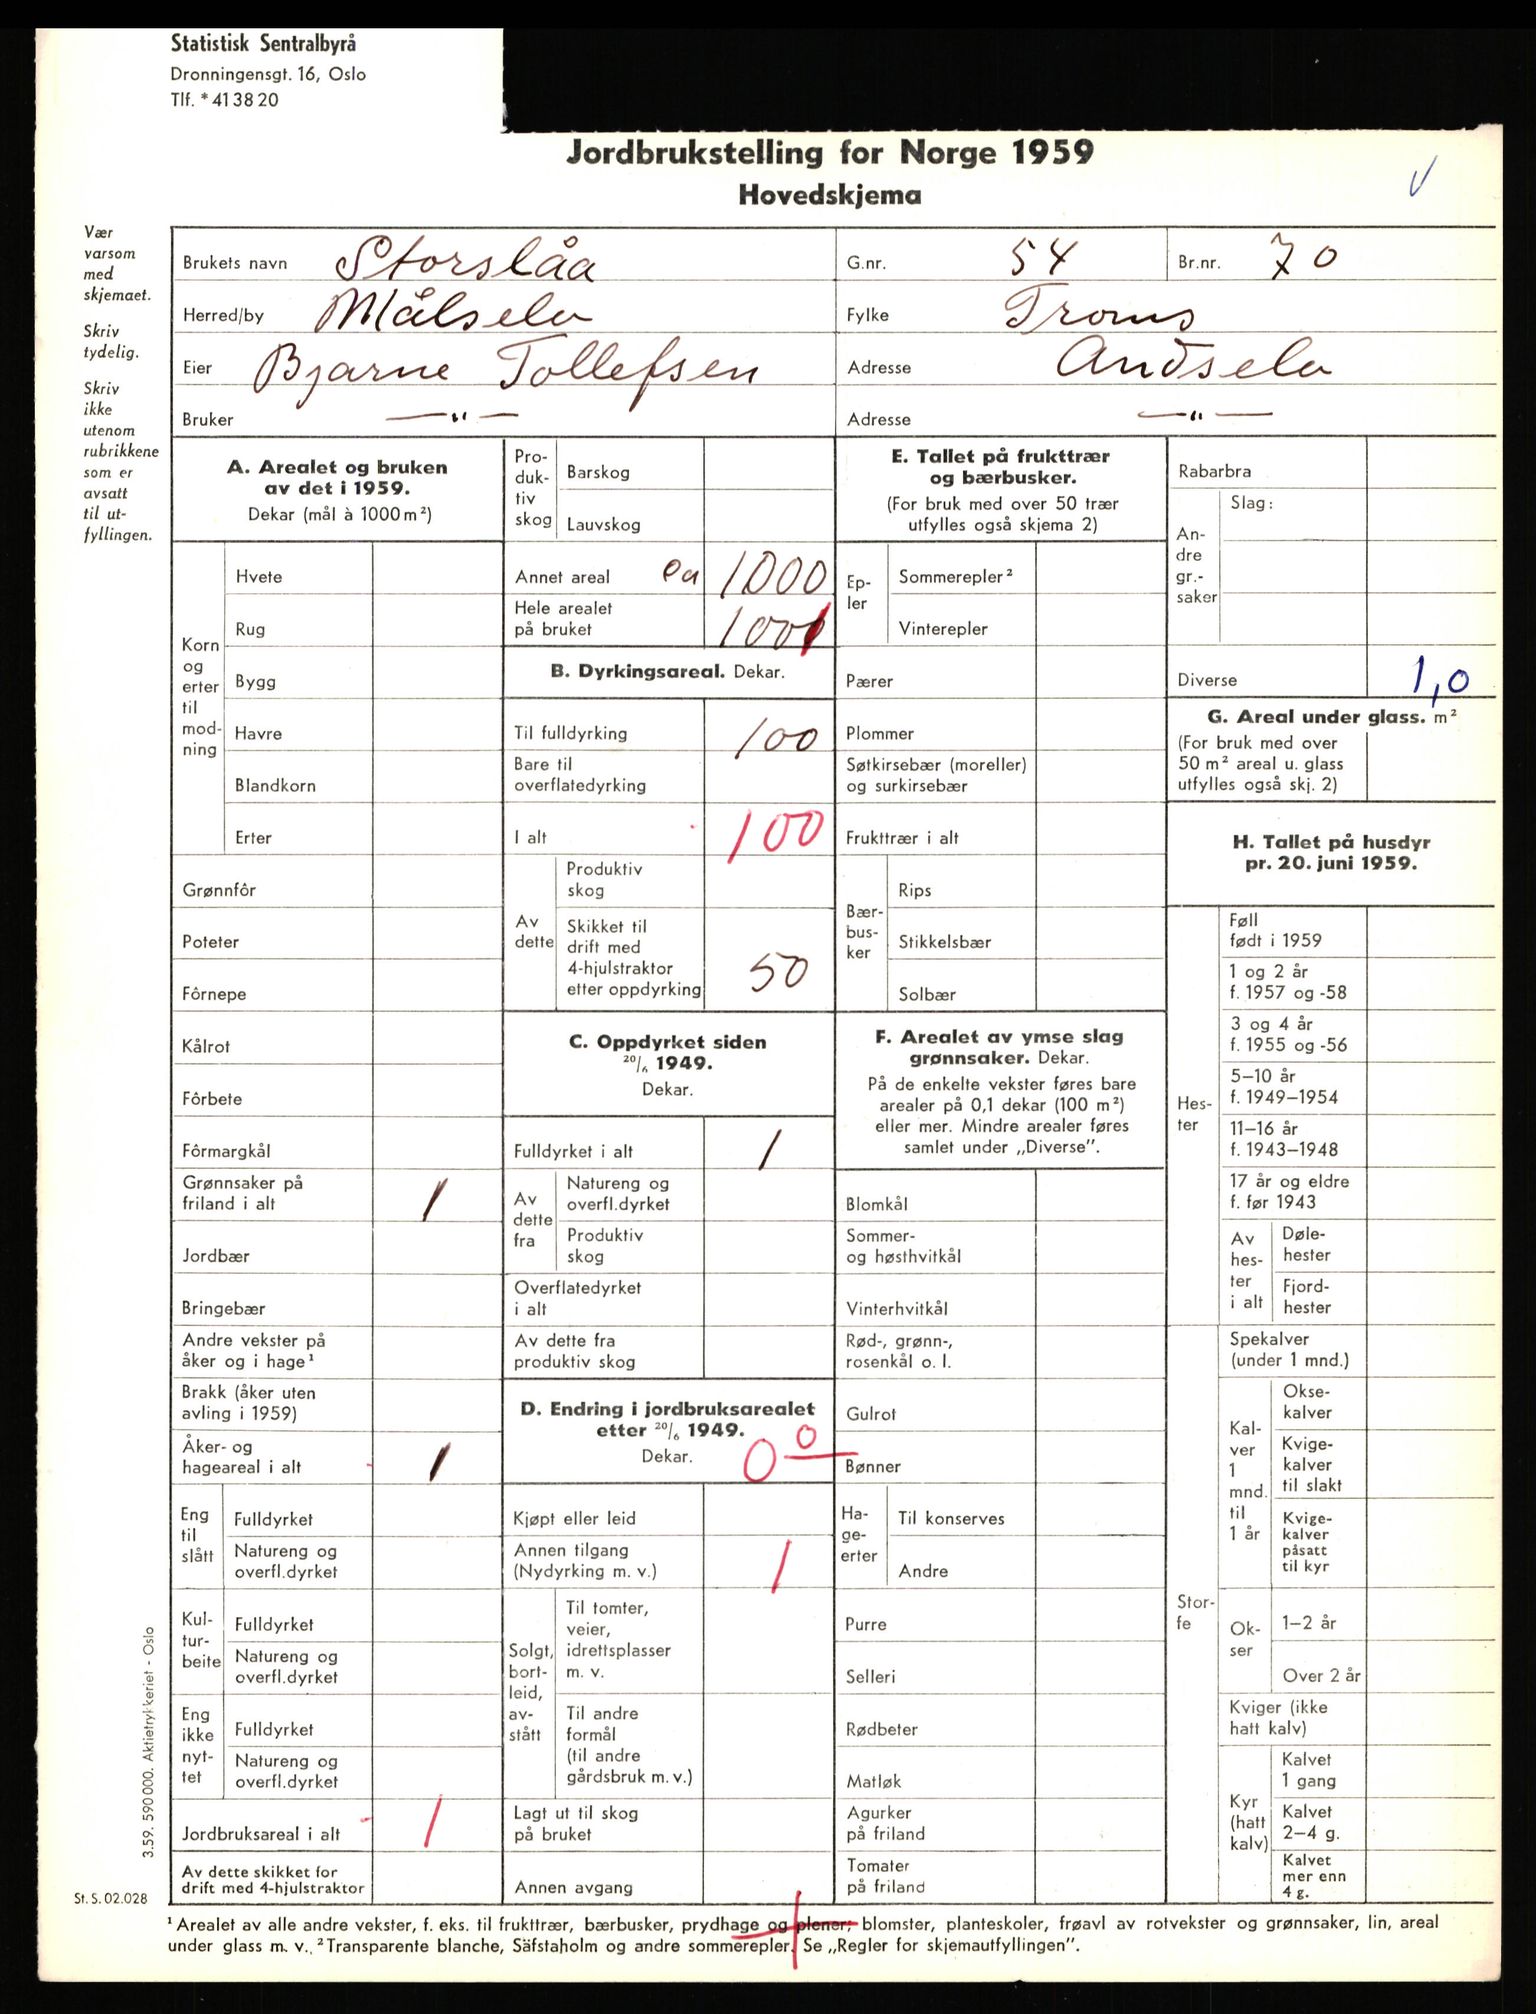 Statistisk Sentralbyrå
Dronningensgt. 16, Oslo
Tlf. * 41 38 20
Jordbrukstelling for Norge 1959
Hovedskjema
V
Vær
varsom
med
skjemaet.
Skriv
tydelig.
Skriv
ikke
utenom
rubrikkene
som er
avsatt
til ut-
fyllingen.
Brukets navn Storslåa G.nr. 54 Br.nr. 70
Herred/by Målselv Fylke Troms
Eier Bjarne Tollefsen Adresse Andselv
Bruker — " — Adresse — " —
A. Arealet og bruken
av det i 1959.
Dekar (mål à 1000 m²)
Korn
og
erter
til
mod-
ning
Hvete
Rug
Bygg
Havre
Blandkorn
Erter
Grønnfôr
Poteter
Fôrnepe
Kålrot
Fôrbete
Fôrmargkål
Grønnsaker på
friland i alt 1
Jordbær
Bringebær
Andre vekster på
åker og i hage¹
Brakk (åker uten
avling i 1959)
Åker- og
hageareal i alt 1
Eng
til
slått
Fulldyrket
Natureng og
overfl.dyrket
Kul-
tur-
beite
Fulldyrket
Natureng og
overfl.dyrket
Eng
ikke
nyt-
tet
Fulldyrket
Natureng og
overfl.dyrket
Jordbruksareal i alt 1
Av dette skikket for
drift med 4-hjulstraktor
Pro-
duk-
tiv
skog
Barskog
Lauvskog
Annet areal ca 1000
Hele arealet
på bruket 1001
B. Dyrkingsareal. Dekar.
Til fulldyrking 100
Bare til
overflatedyrking
I alt 100
Av
dette
Produktiv
skog
Skikket til
drift med
4-hjulstraktor
etter oppdyrking 50
C. Oppdyrket siden
20/6 1949.
Dekar.
Fulldyrket i alt 1
Av
dette
fra
Natureng og
overfl.dyrket
Produktiv
skog
Overflatedyrket
i alt
Av dette fra
produktiv skog
D. Endring i jordbruksarealet
etter 20/6 1949.
Dekar. 0 0
Kjøpt eller leid
Annen tilgang
(Nydyrking m. v.) 1
Solgt,
bort-
leid,
av-
stått
Til tomter,
veier,
idrettsplasser
m. v.
Til andre
formål
(til andre
gårdsbruk m. v.)
Lagt ut til skog
på bruket
Annen avgang
E. Tallet på frukttrær
og bærbusker.
(For bruk med over 50 trær
utfylles også skjema 2)
Ep-
ler
Sommerepler²
Vinterepler
Pærer
Plommer
Søtkirsebær (moreller)
og surkirsebær
Frukttrær i alt
Bær-
bus-
ker
Rips
Stikkelsbær
Solbær
F. Arealet av ymse slag
grønnsaker. Dekar.
På de enkelte vekster føres bare
arealer på 0,1 dekar (100 m²)
eller mer. Mindre arealer føres
samlet under „Diverse".
Blomkål
Sommer-
og høsthvitkål
Vinterhvitkål
Rød-, grønn-,
rosenkål o. l.
Gulrot
Bønner
Ha-
ge-
erter
Til konserves
Andre
Purre
Selleri
Rødbeter
Matløk
Agurker
på friland
Tomater
på friland
Rabarbra
An-
dre
gr.-
saker
Slag:
Diverse 1,0
G. Areal under glass. m²
(For bruk med over
50 m² areal u. glass
utfylles også skj. 2)
H. Tallet på husdyr
pr. 20. juni 1959.
Hes-
ter
Føll
født i 1959
1 og 2 år
f. 1957 og -58
3 og 4 år
f. 1955 og -56
5–10 år
f. 1949–1954
11–16 år
f. 1943–1948
17 år og eldre
f. før 1943
Av
hes-
ter
i alt
Døle-
hester
Fjord-
hester
Stor-
fe
Spekalver
(under 1 mnd.)
Kal-
ver
1
mnd.
til
1 år
Okse-
kalver
Kvige-
kalver
til slakt
Kvige-
kalver
påsatt
til kyr
Ok-
ser
1–2 år
Over 2 år
Kviger (ikke
hatt kalv)
Kyr
(hatt
kalv)
Kalvet
1 gang
Kalvet
2–4 g.
Kalvet
mer enn
4 g.
3.59. 590 000. Aktietrykkeriet - Oslo
St. S. 02.028
¹ Arealet av alle andre vekster, f. eks. til frukttrær, bærbusker, prydhage og plener, blomster, planteskoler, frøavl av rotvekster og grønnsaker, lin, areal
under glass m. v. ² Transparente blanche, Säfstaholm og andre sommerepler. Se „Regler for skjemautfyllingen".